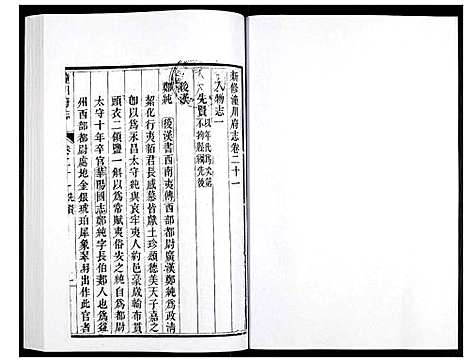 新修潼川府志卷二十一
人物志一
先賢以年代爲次第不拘縣國先後
後漢
鄭純 後漢書西南夷傳西部都尉廣漢鄭純爲政清
絜化行夷貊君長感慕皆獻土珍頌德美天子嘉之
卽以爲永昌太守純與哀牢夷人約邑豪歲輸布貫
頭衣二領鹽一斛以爲常賦夷俗安之純自爲都尉
太守十年卒官華陽國志鄭純字長伯郪人也爲益
州西部都尉處地金銀琥珀犀象翠羽出作此官者